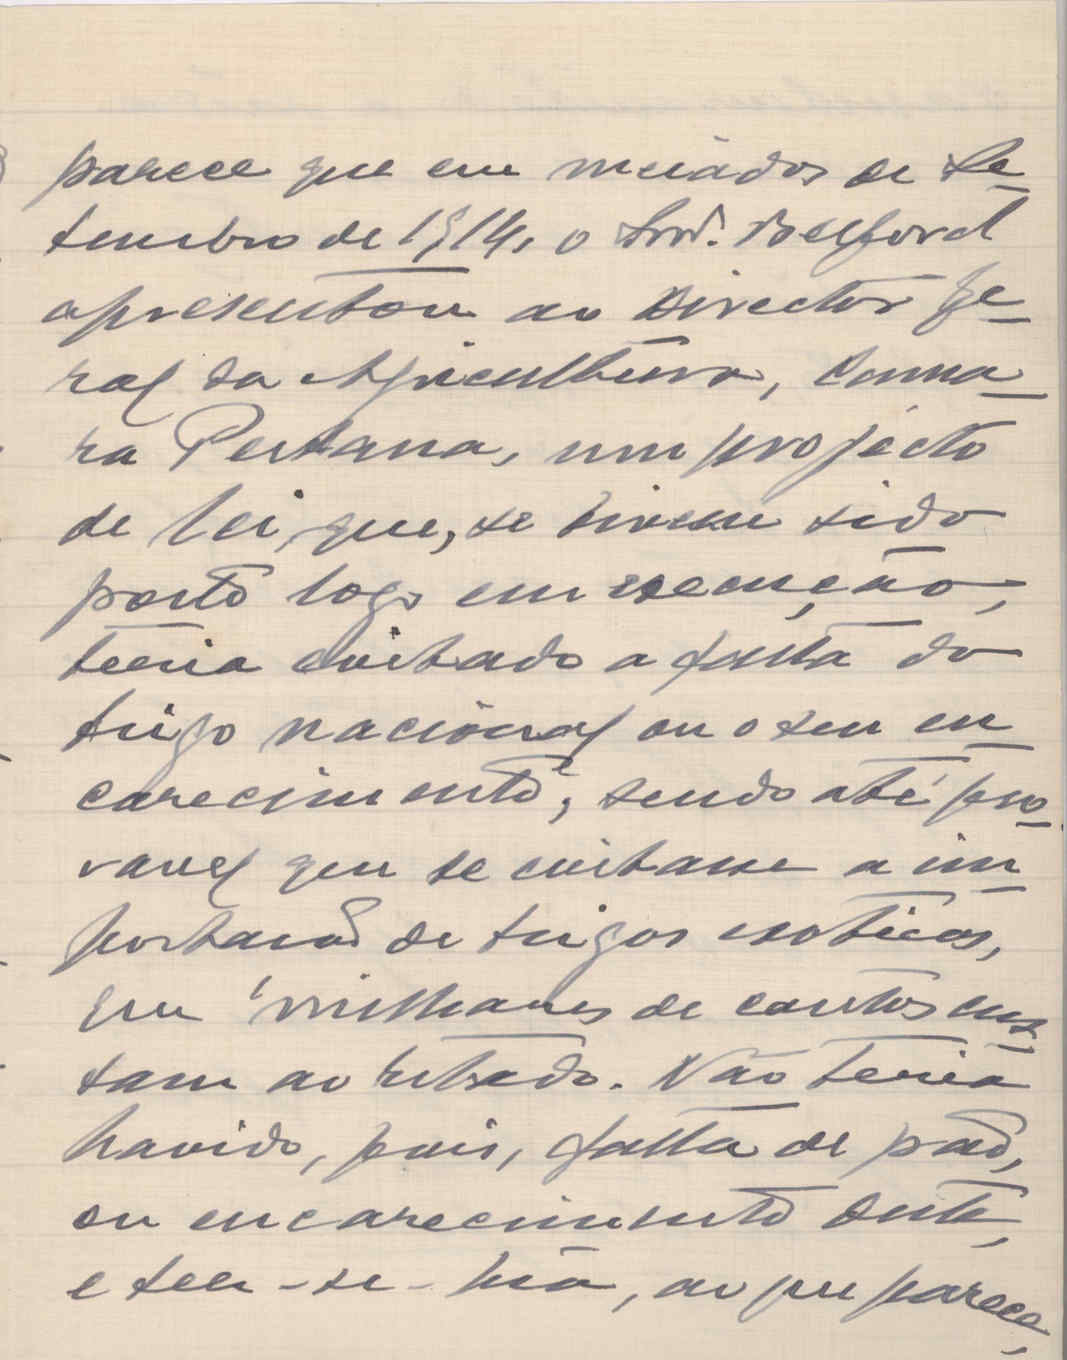 parece que em meiados de Se-
tembro de 1914, o Snr. Belford
apresentou ao Director Ge-
ral da Agricultura, Camma-
ra Pestana, um projécto
de lei, que, se tivesse sido
posto logo em execução,
teria evitado a falta do
trigo nacional ou o seu en-
carecimento, sendo até pro-
vavel que se evitasse a im-
portação de trigos exoticos,
que milhares de contos cus-
tam ao Estado. Não teria
havido, pois, falta de pão,
ou encarecimento deste,
e ter-se-hia, ao que parece,